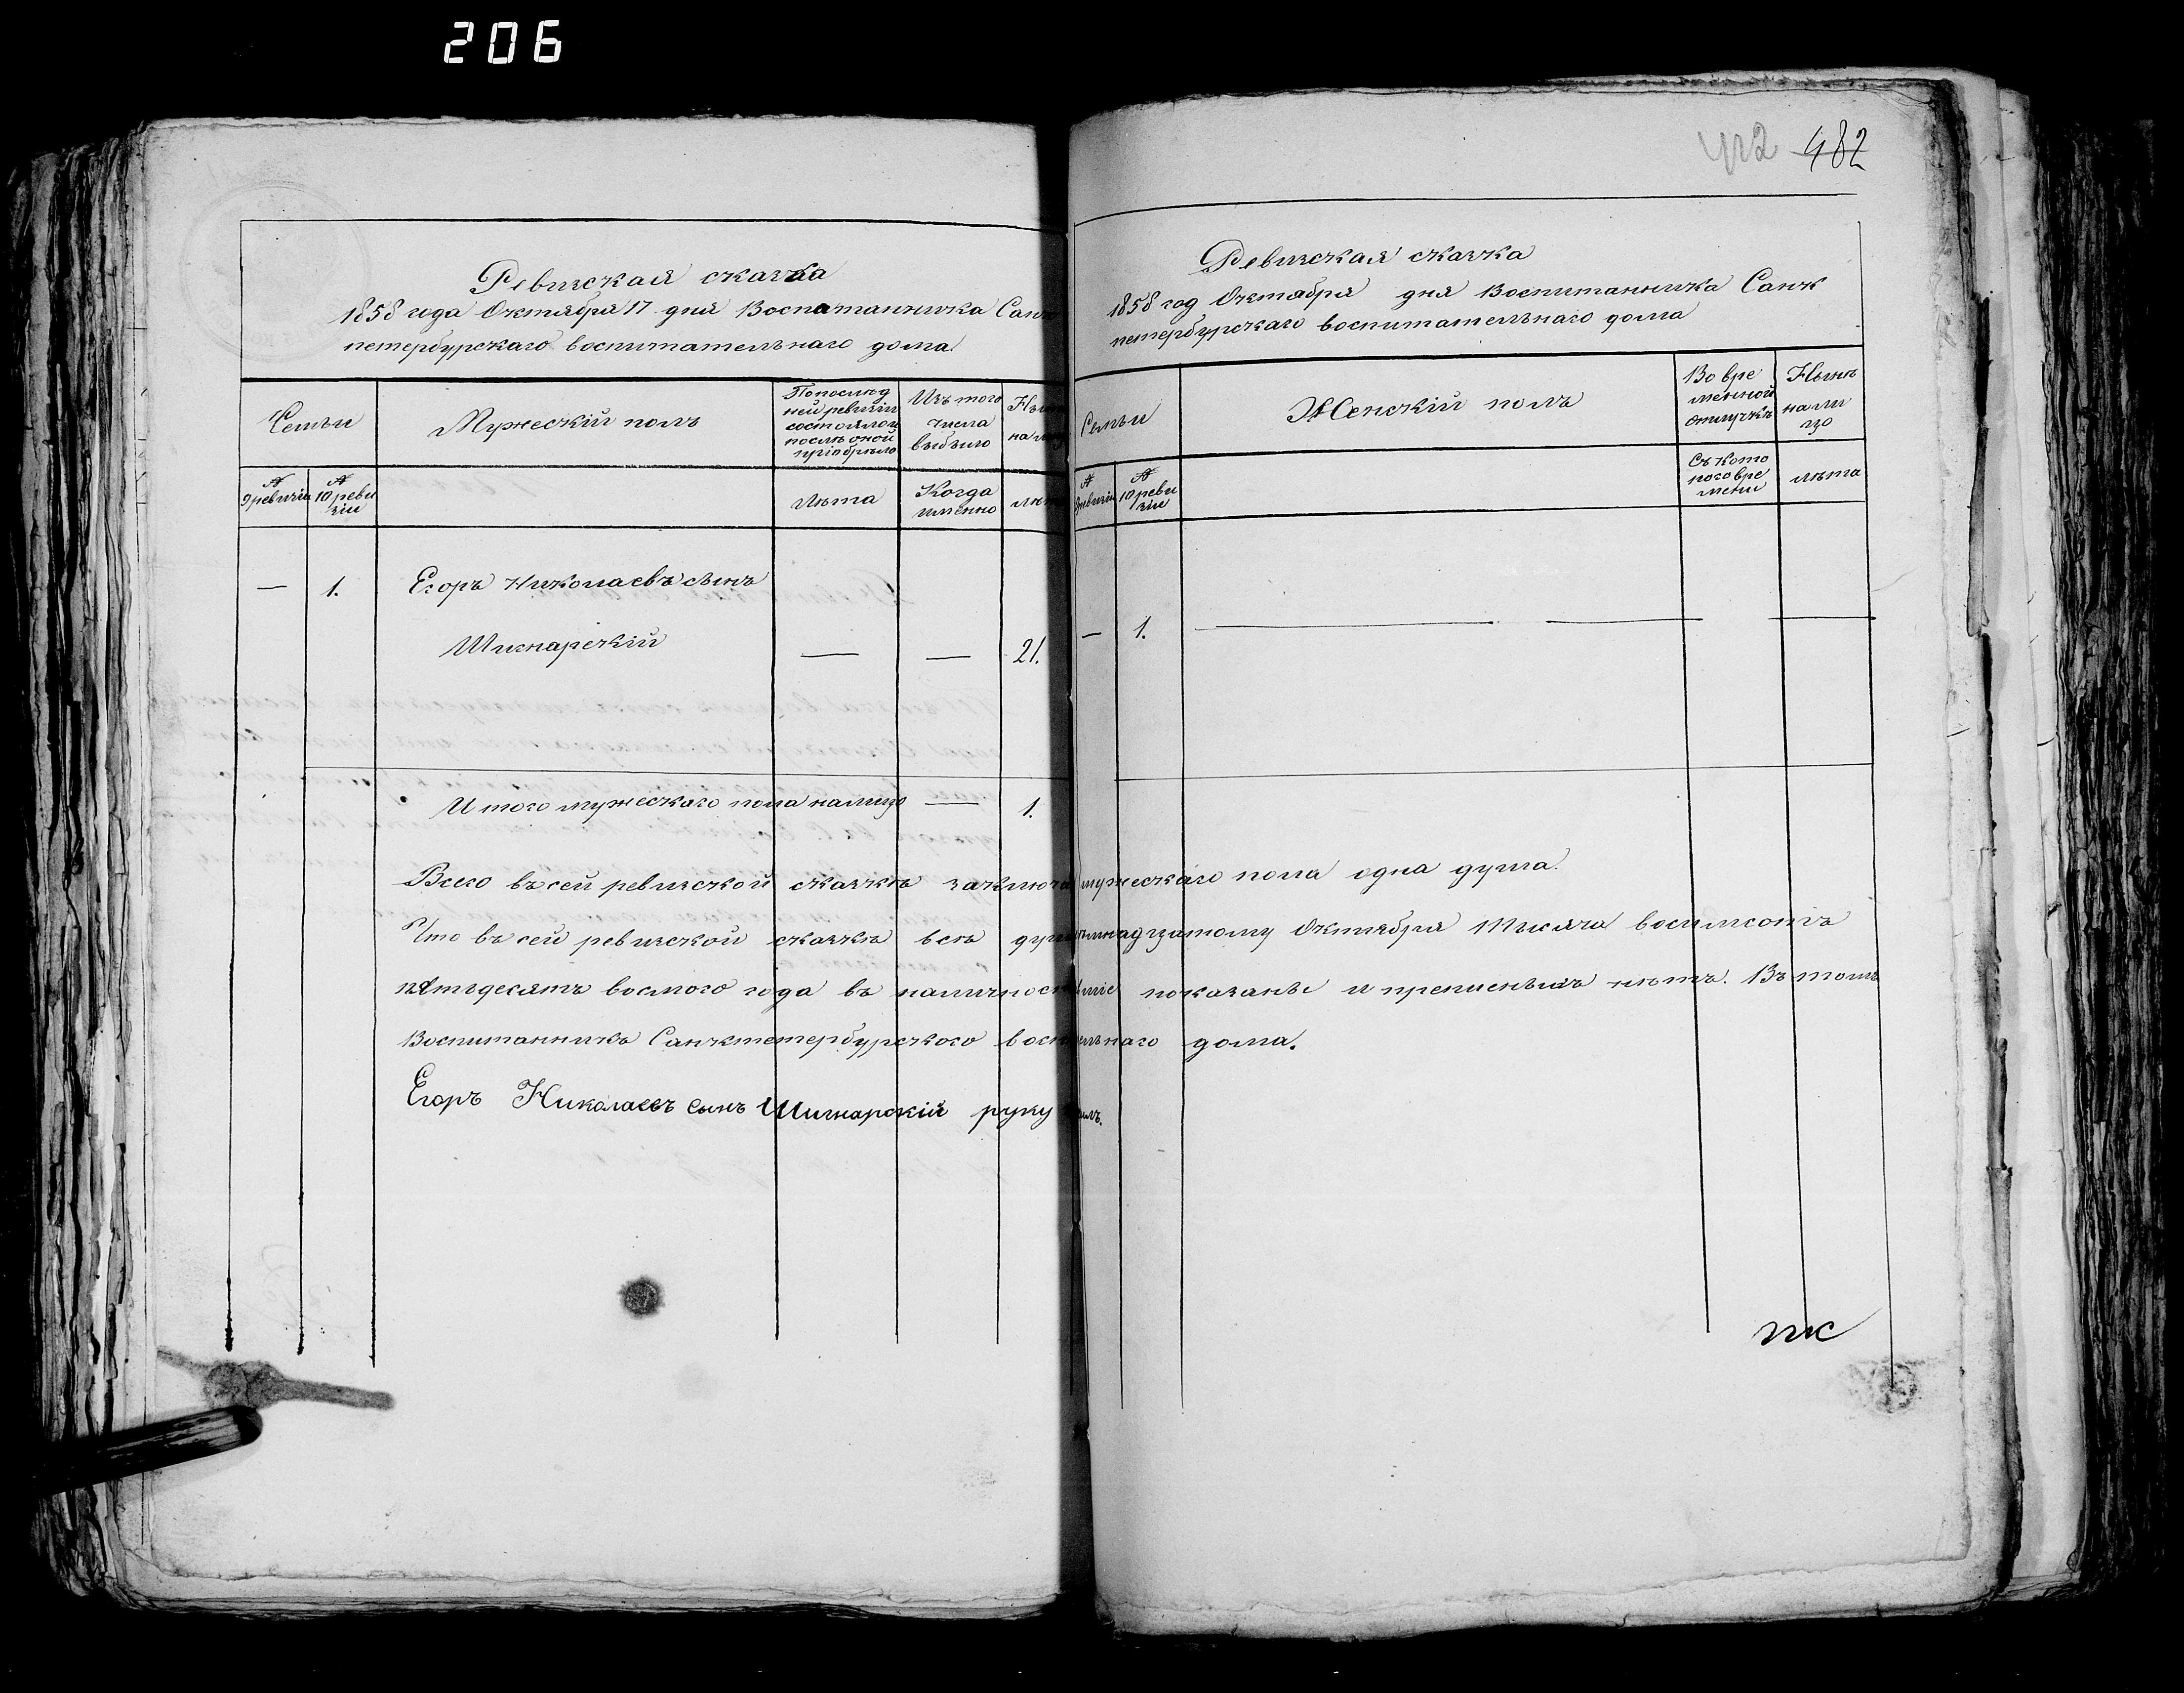 206
482
Ревизская сказка
1858 года Октября 17 дня Воспатанничка Санк
петербурскаго воспитательнаго дома.
Семьи
Мужеский полъ
По послѣд
ней ревизіи
состоялои
послѣ оной
прибрыло
Изъ того
числа
выбыло
№
9 ревизіи
№
10 реви
зіи
Лѣта
Когда
именно
— 1. Егоръ Николаевъ сынъ
Шигнарскій — — 21.
Итого мужескаго пола налицо — 1.
Ревизская сказка
1858 год Октября дня Воспитанничка Санк
петербурскаго воспитательнаго дома
Семьи
Женскій полъ
Во вре
менной
отлучкѣ
Нынѣ
на ли
цо
№
9 ревизіи
№
10 реви
зіи
Съ кото
раго вре
мени
лѣта
— 1. — — —
Всего въ сей ревизской сказкѣ заключа мужескаго пола одна душа.
Что въ сей ревизской сказкѣ всѣ душ надцатому Октября Тысяча восимсотъ
пятдесятъ восмого года въ наличнос показаны и прописныхъ нѣтъ. Въ томъ
Воспитанникъ Санктетербурского восп ельнаго дома.
Егоръ Николаевъ сынъ Шигнарскій руку илъ.